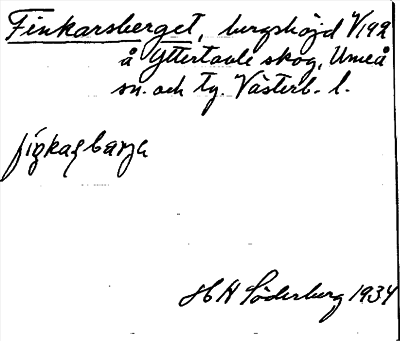 Finkarsberget, bergshöjd V/192
å Yttertavle skog, Umeå
sn. och tg. Västerb. l.
H H Söderberg 1934